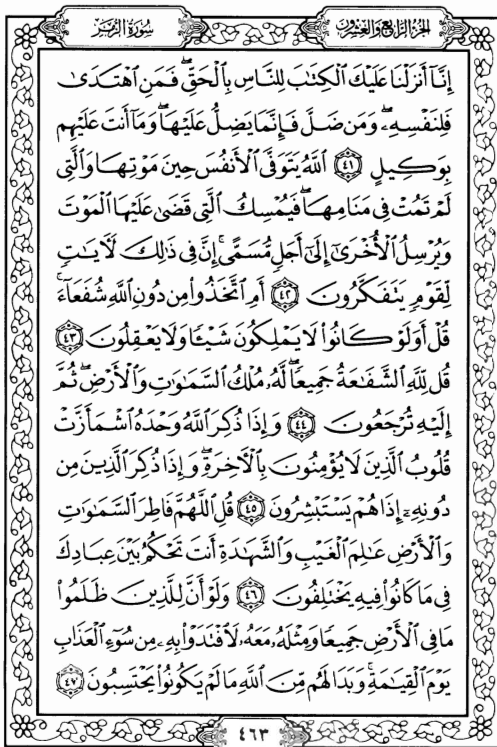 الجزء الرابع والعشرون
سورة الزمر
إِنَّآ أَنزَلْنَا عَلَيْكَ ٱلْكِتَٰبَ لِلنَّاسِ بِٱلْحَقِّۖ فَمَنِ ٱهْتَدَىٰ
فَلِنَفْسِهِۦۖ وَمَن ضَلَّ فَإِنَّمَا يَضِلُّ عَلَيْهَاۖ وَمَآ أَنتَ عَلَيْهِم
بِوَكِيلٍ ٤١ ٱللَّهُ يَتَوَفَّى ٱلْأَنفُسَ حِينَ مَوْتِهَا وَٱلَّتِى
لَمْ تَمُتْ فِى مَنَامِهَاۖ فَيُمْسِكُ ٱلَّتِى قَضَىٰ عَلَيْهَا ٱلْمَوْتَ
وَيُرْسِلُ ٱلْأُخْرَىٰٓ إِلَىٰٓ أَجَلٍ مُّسَمًّىۚ إِنَّ فِى ذَٰلِكَ لَءَايَٰتٍ
لِّقَوْمٍ يَتَفَكَّرُونَ ٤٢ أَمِ ٱتَّخَذُوا۟ مِن دُونِ ٱللَّهِ شُفَعَآءَۚ
قُلْ أَوَلَوْ كَانُوا۟ لَا يَمْلِكُونَ شَيْـًٔا وَلَا يَعْقِلُونَ ٤٣
قُل لِّلَّهِ ٱلشَّفَٰعَةُ جَمِيعًاۖ لَّهُۥ مُلْكُ ٱلسَّمَٰوَٰتِ وَٱلْأَرْضِۖ ثُمَّ
إِلَيْهِ تُرْجَعُونَ ٤٤ وَإِذَا ذُكِرَ ٱللَّهُ وَحْدَهُ ٱشْمَأَزَّتْ
قُلُوبُ ٱلَّذِينَ لَا يُؤْمِنُونَ بِٱلْأَخِرَةِۖ وَإِذَا ذُكِرَ ٱلَّذِينَ مِن
دُونِهِۦٓ إِذَا هُمْ يَسْتَبْشِرُونَ ٤٥ قُلِ ٱللَّهُمَّ فَاطِرَ ٱلسَّمَٰوَٰتِ
وَٱلْأَرْضِ عَٰلِمَ ٱلْغَيْبِ وَٱلشَّهَٰدَةِ أَنتَ تَحْكُمُ بَيْنَ عِبَادِكَ
فِى مَا كَانُوا۟ فِيهِ يَخْتَلِفُونَ ٤٦ وَلَوْ أَنَّ لِلَّذِينَ ظَلَمُوا۟
مَا فِى ٱلْأَرْضِ جَمِيعًا وَمِثْلَهُۥ مَعَهُۥ لَٱفْتَدَوْا۟ بِهِۦ مِن سُوٓءِ ٱلْعَذَابِ
يَوْمَ ٱلْقِيَٰمَةِۚ وَبَدَا لَهُم مِّنَ ٱللَّهِ مَا لَمْ يَكُونُوا۟ يَحْتَسِبُونَ ٤٧
٤٦٣